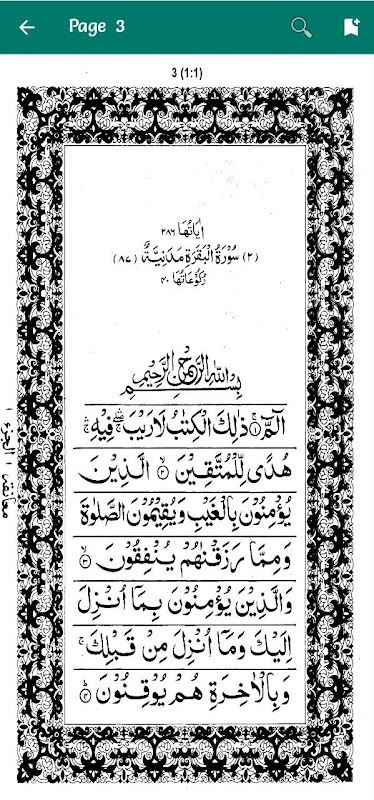 Page 3
3 (1:1)
اٰيَاتُهَا ٢٨٦
(٢) سُوْرَةُ الْبَقَرَةِ مَدَنِيَّةٌ (٨٧)
رُكُوْعَاتُهَا ٤٠
بِسْمِ اللّٰهِ الرَّحْمٰنِ الرَّحِيْمِ
الٓمّٓ ۚ ﴿١﴾ ذٰلِكَ الْكِتٰبُ لَا رَيْبَ ۛۖ فِيْهِ ۛۚ
هُدًى لِّلْمُتَّقِيْنَ ۙ ﴿٢﴾ الَّذِيْنَ
يُؤْمِنُوْنَ بِالْغَيْبِ وَيُقِيْمُوْنَ الصَّلٰوةَ
وَمِمَّا رَزَقْنٰهُمْ يُنْفِقُوْنَ ۙ ﴿٣﴾
وَالَّذِيْنَ يُؤْمِنُوْنَ بِمَآ اُنْزِلَ
اِلَيْكَ وَمَآ اُنْزِلَ مِنْ قَبْلِكَ ۚ
وَبِالْاٰخِرَةِ هُمْ يُوْقِنُوْنَ ؕ ﴿٤﴾
معانقة ١ الجزء ١